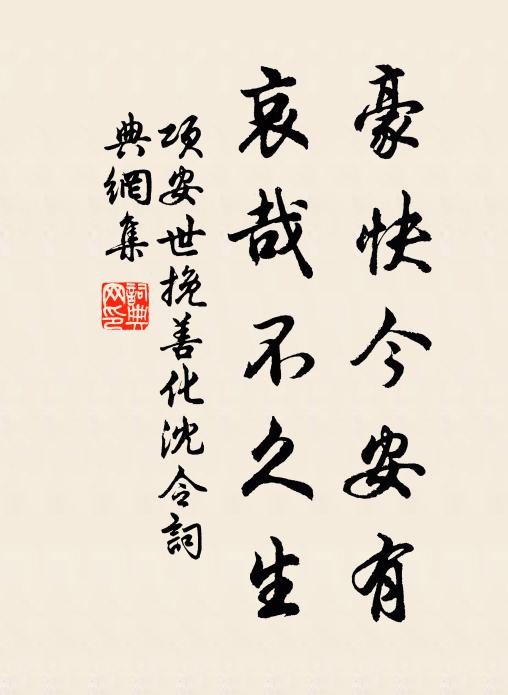 豪快今安有
哀哉不久生
項安世挽善化沈令詞
典網集
詞典網印